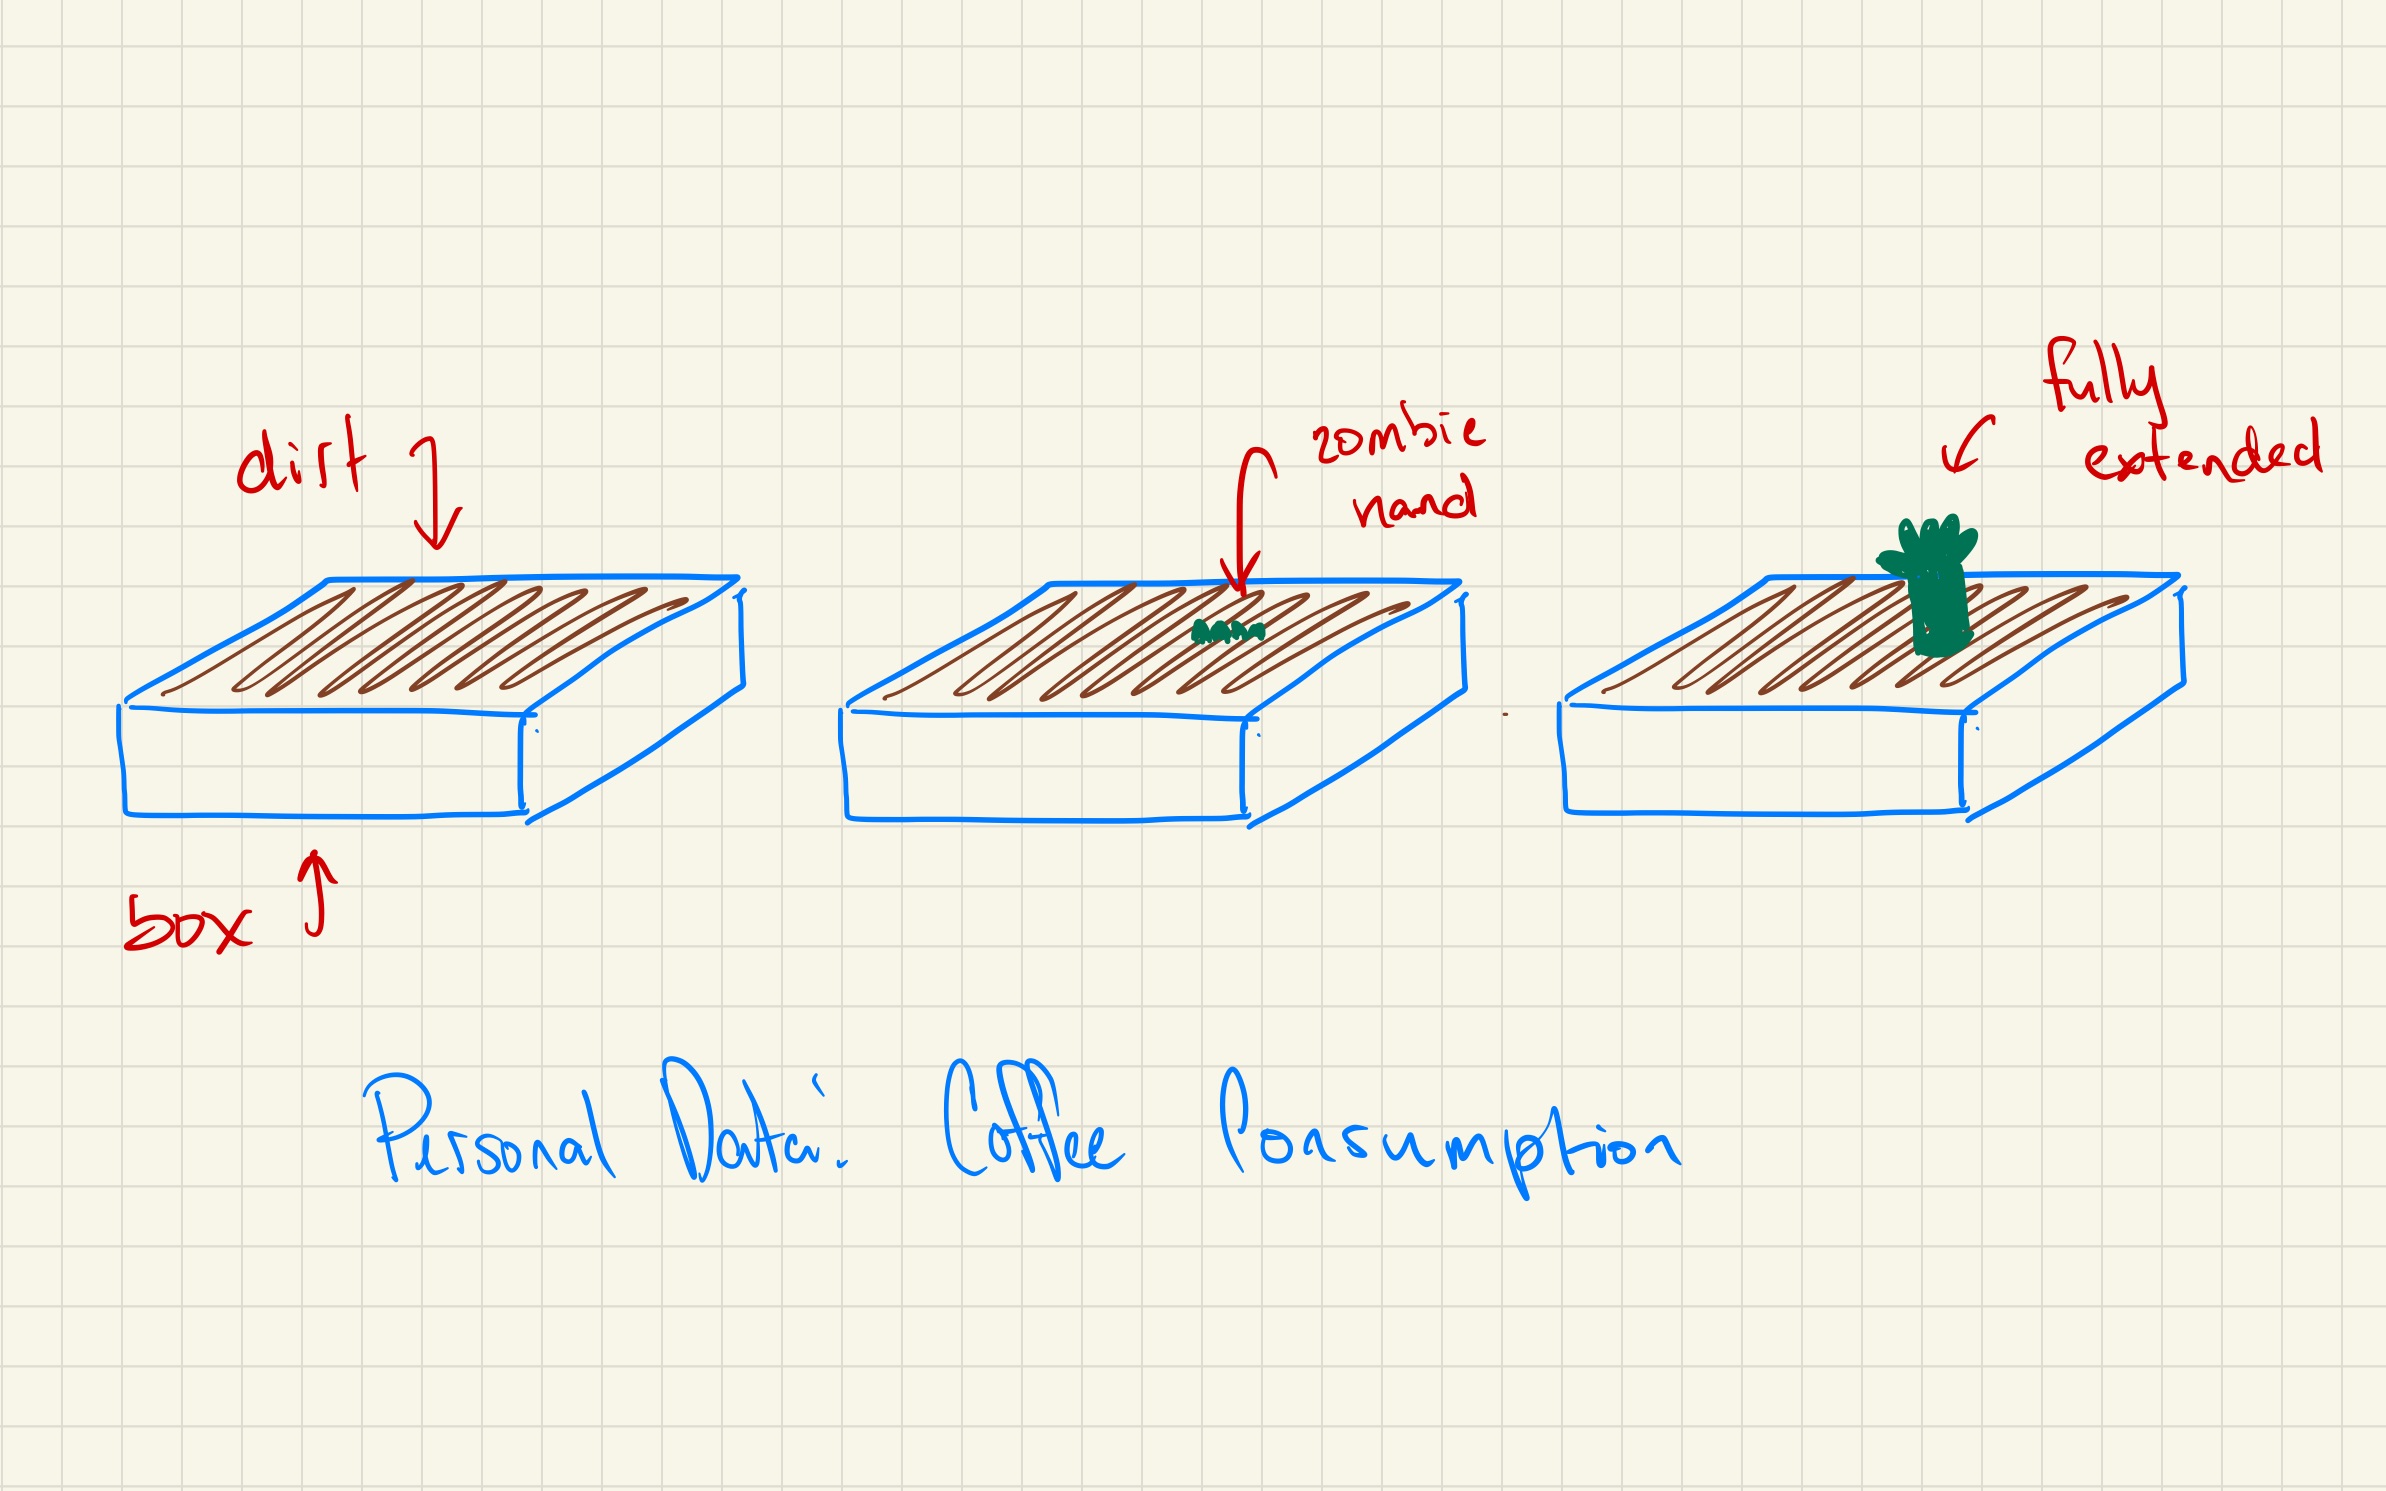 dirt
zombie
hand
fully
extended
box
Personal Data: Coffee Consumption